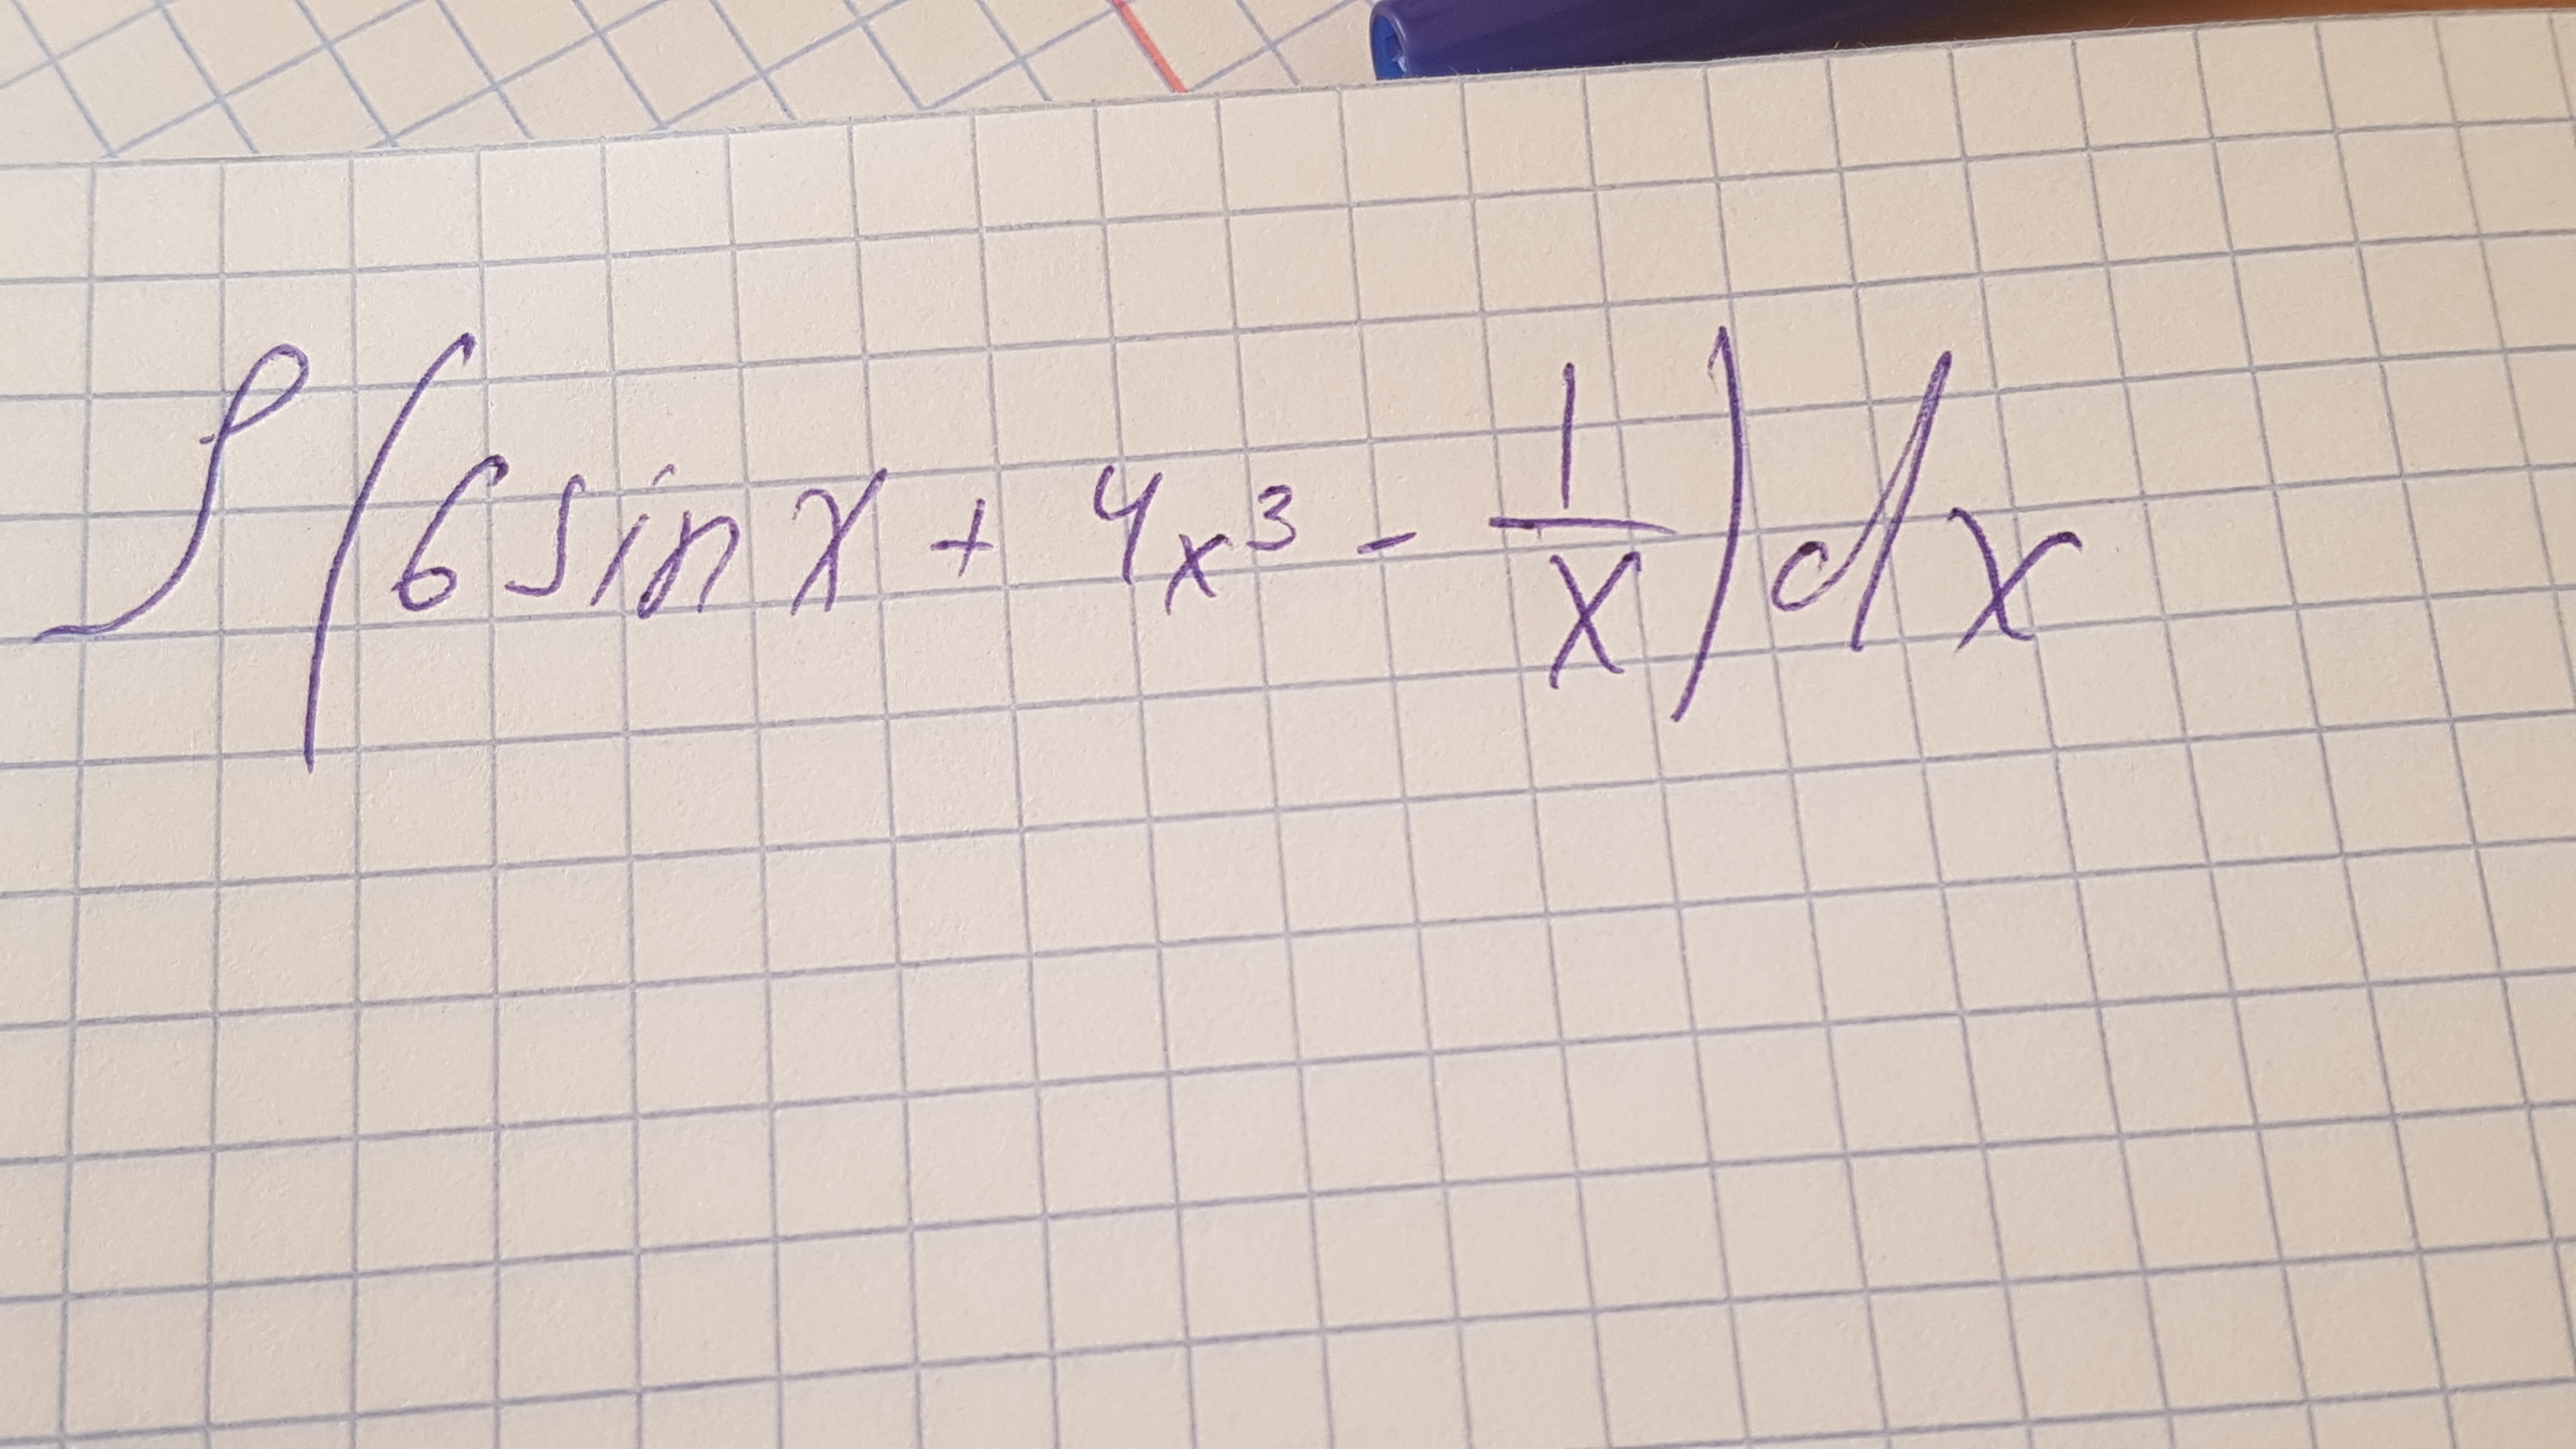 ∫(6sinx + 4x³ - 1/x)dx